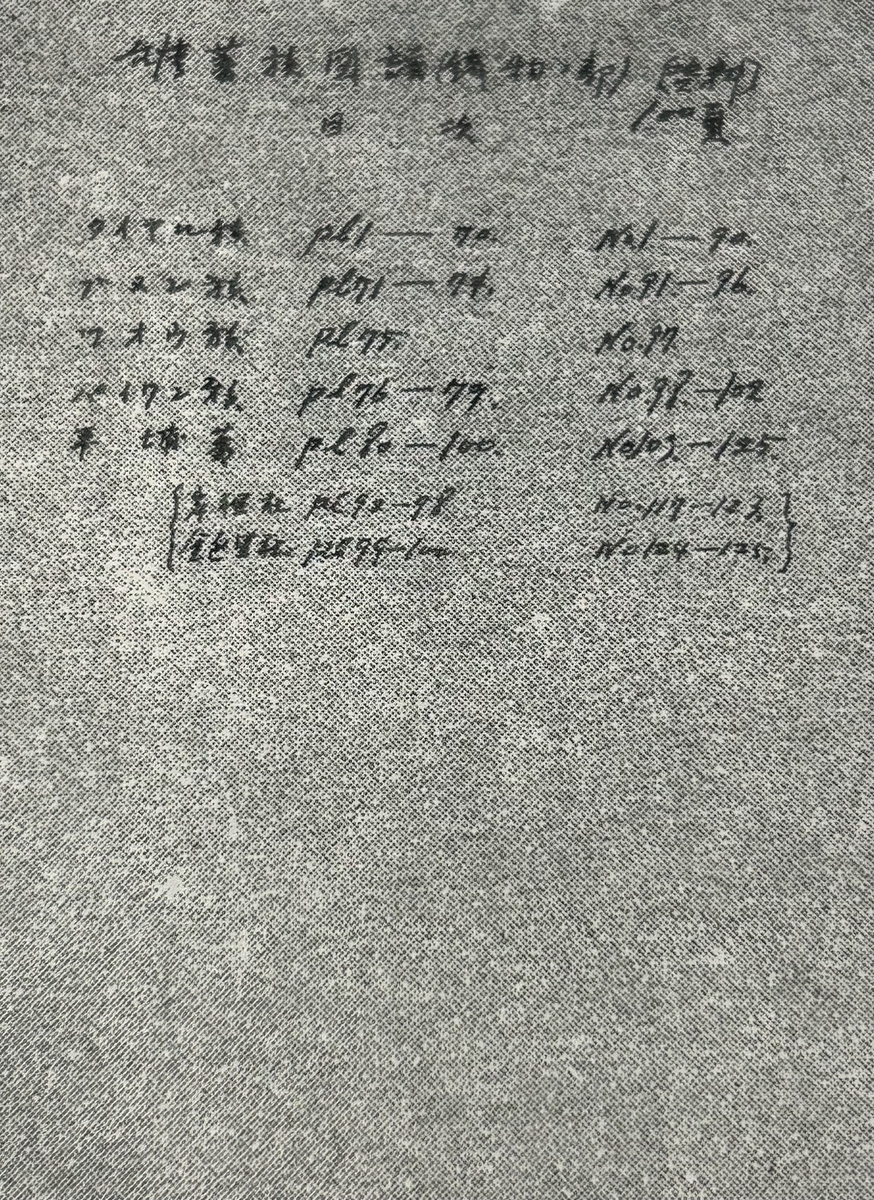 蕃族図譜(織物ノ部)
目次
タイヤル族 pl1—70. No.1—90.
ブヌン族 pl71—74. No.91—96.
ツオウ族 pl75. No.97
パイワン族 pl76—79. No.98—102
平埔蕃 pl80—100. No103—125.
pl92—98 No.117—123.
pl99—100 No124—125.